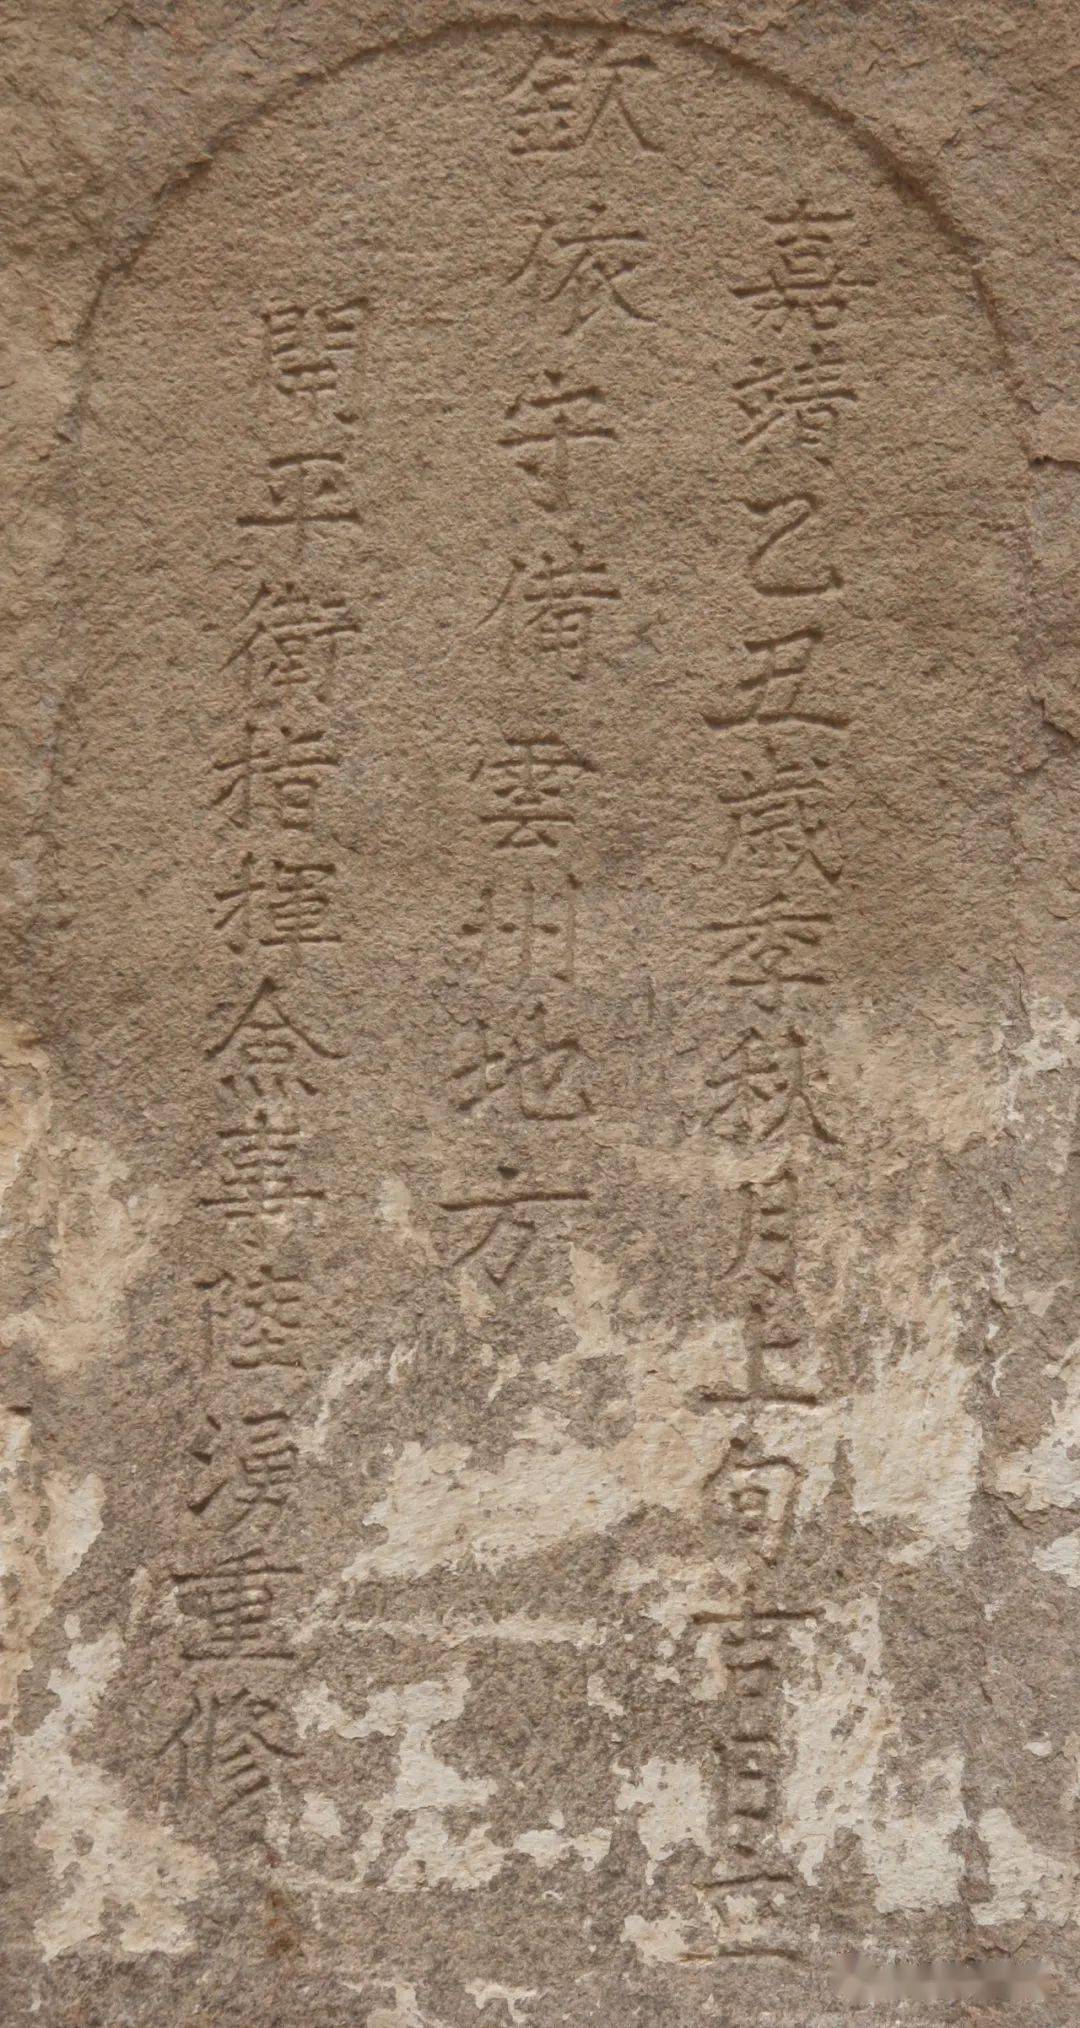 嘉靖乙丑歲季秋月上旬吉日立
欽依守備雲州地方
開平衛指揮僉事陸湧重修